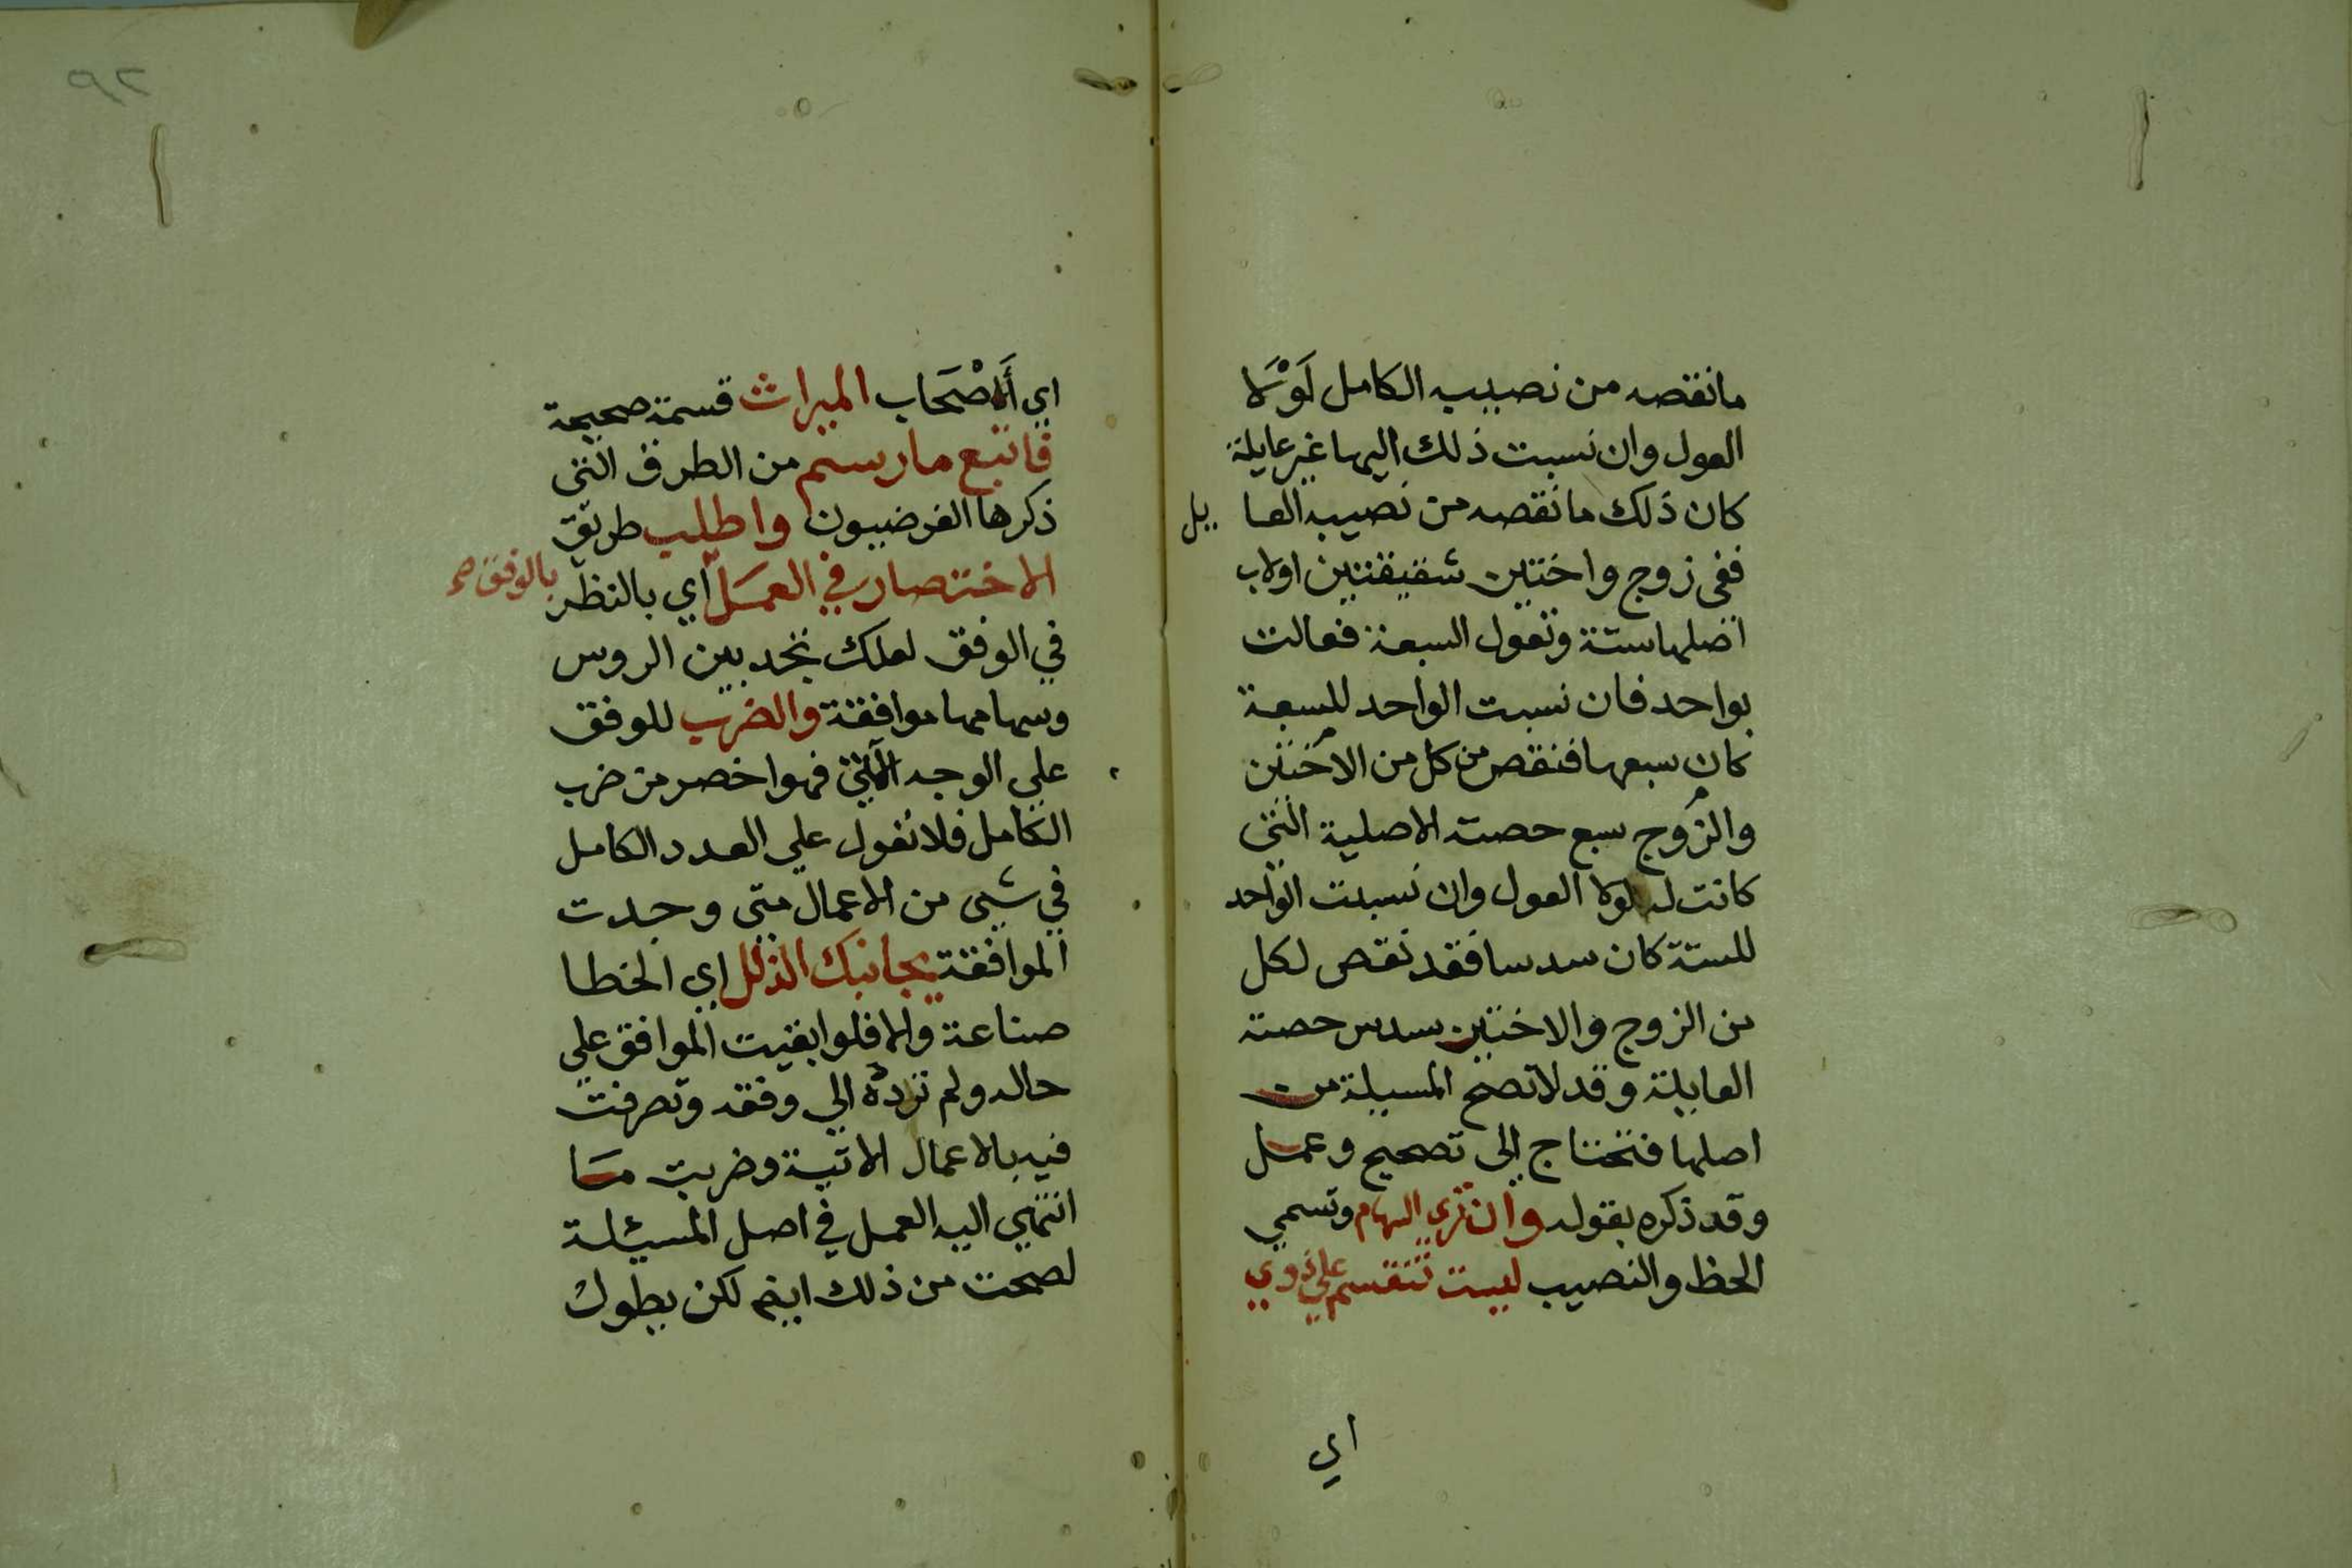 مانقصه من نصيبه الكامل لَوْلَا
العول وان نسبت ذلك اليها غير عايلة
كان ذلك مانقصه من نصيبه العا يل
ففى زوج واختين شقيقتين اولاب
اصلها ستة وتعول السبعة فعالت
بواحد فان نسبت الواحد للسبعة
كان سبعها فنقص من كل من الاختين
والزوج سبع حصته الاصلية التي
كانت له لولا العول وان نسبت الواحد
للستة كان سدسا فقد نقص لكل
من الزوج والاختين سدس حصته
العايلة وقد لا تصح المسيلة من
اصلها فتحتاج الى تصحيح وعمل
وقد ذكره بقوله وان تري السهام وتسمي
الحظ والنصيب ليست تنقسم علي ذوي
اي
٩٢
اي أَصْحَاب الميراث قسمة صحيحة
فاتبع مارسم من الطرق التي
ذكرها الفرضيون واطلب طريق
الاختصار في العمَل اي بالنظر بالوفق صح
في الوفق لعلك تجد بين الروس
وسهامها موافقة والضرب للوفق
علي الوجه الآتي فهوا خصر من ضرب
الكامل فلا تعول علي العدد الكامل
في شيي من الاعمال متى وجدت
الموافقة يجانبك الزلل اي الخطا
صناعة والا فلوا بقيت الموافق علي
حاله ولم تردّه الي وفقه وتصرفت
فيه بالاعمال الاتية وضربت مَا
انتهي اليه العمل في اصل المسيئلة
لصحت من ذلك ايضم لكن بطول